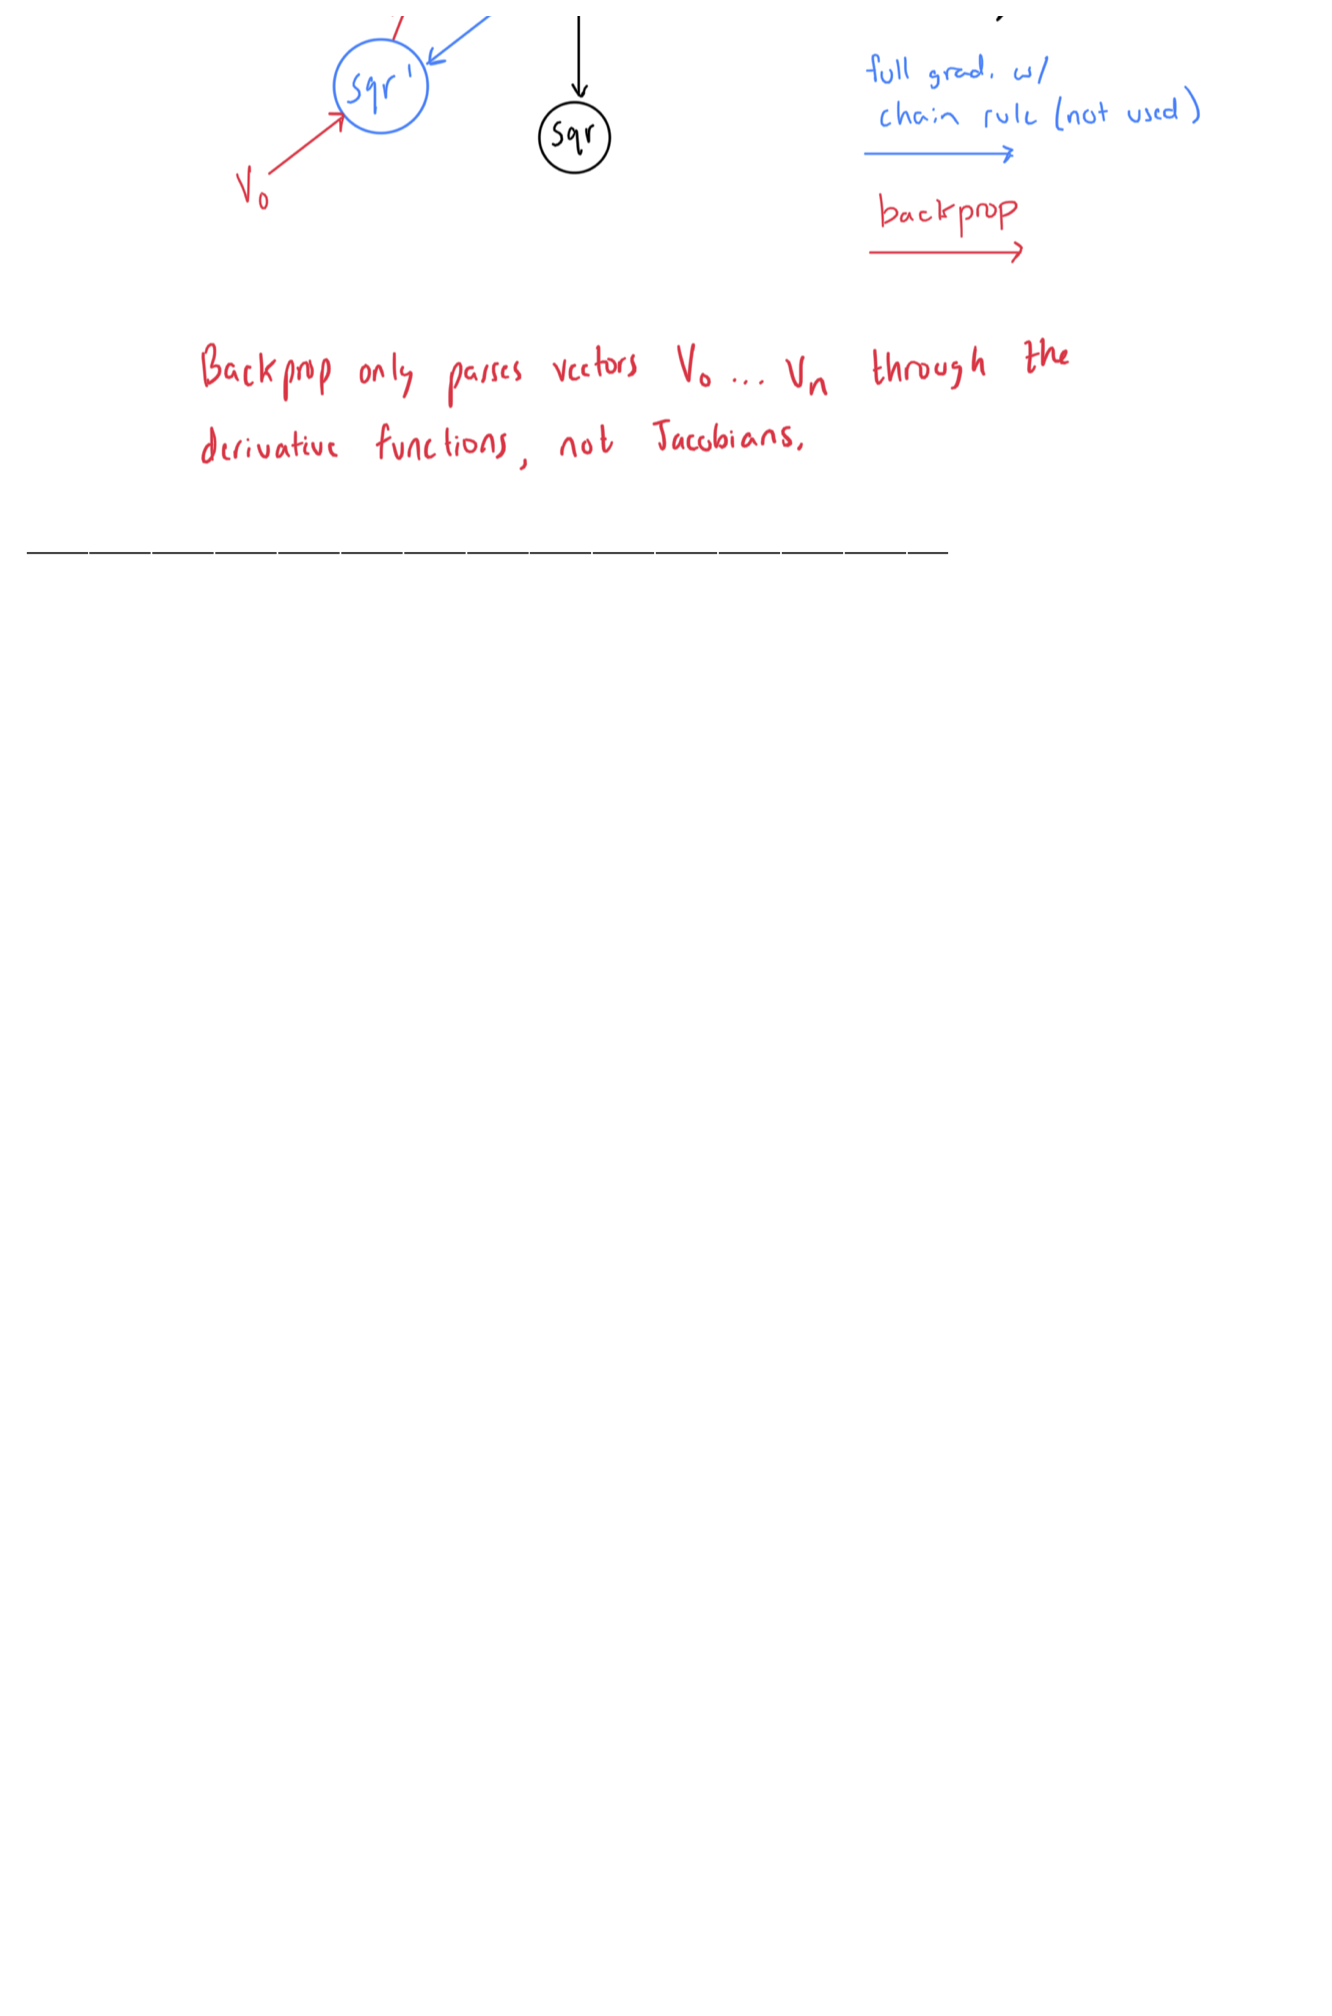 sqr'
sqr
V₀
full grad. w/
chain rule (not used)
backprop
Backprop only parses vectors V₀ ... Vₙ through the
derivative functions, not Jacobians.